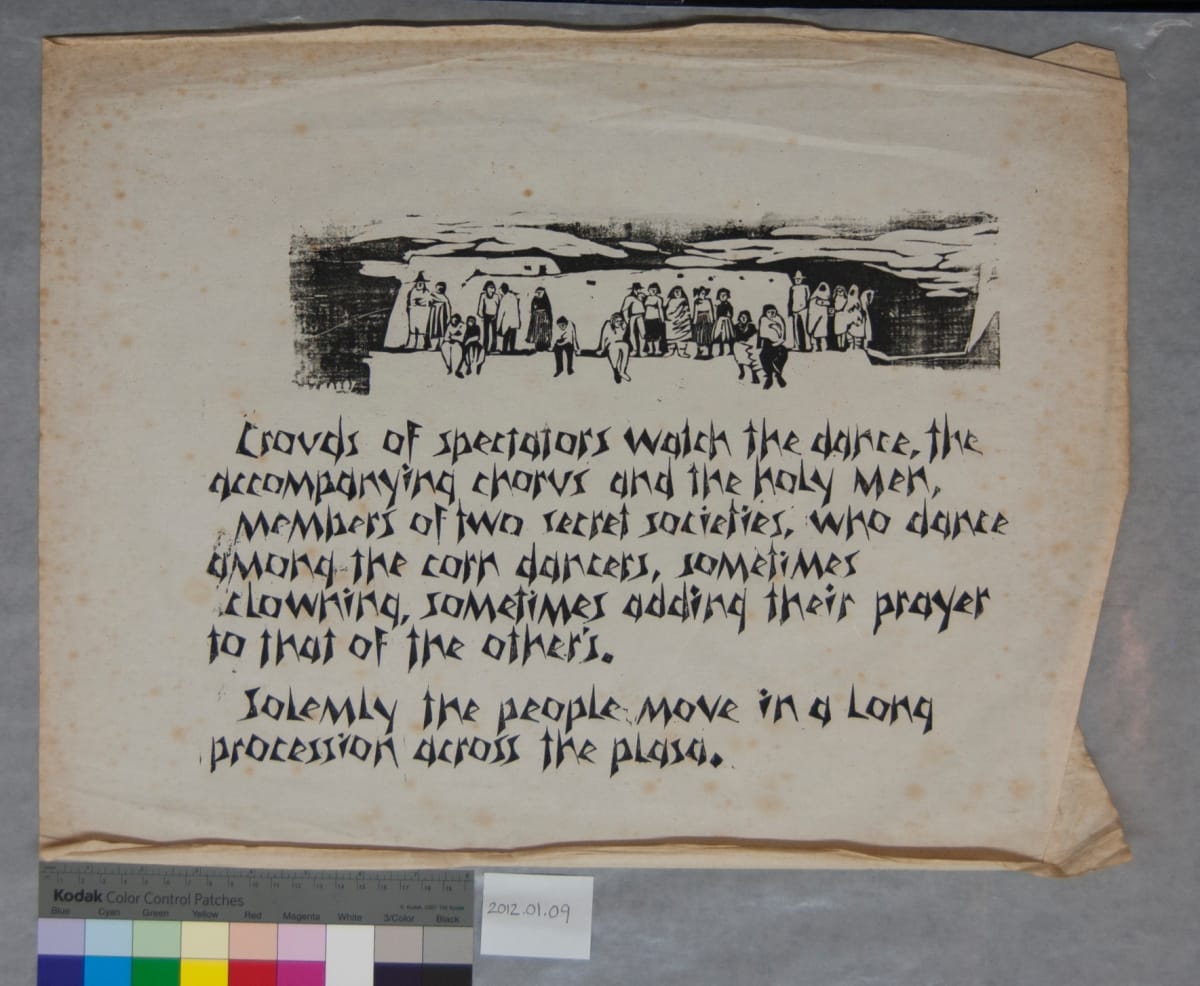 Crowds of spectators watch the dance, the
accompanying chorus and the holy men,
members of two secret societies, who dance
among the corn dancers, sometimes
clowning, sometimes adding their prayer
to that of the other's.
Solemly the people move in a long
procession across the plasa.
Kodak Color Control Patches
Blue Cyan Green Yellow Red Magenta White 3/Color Black
2012.01.09